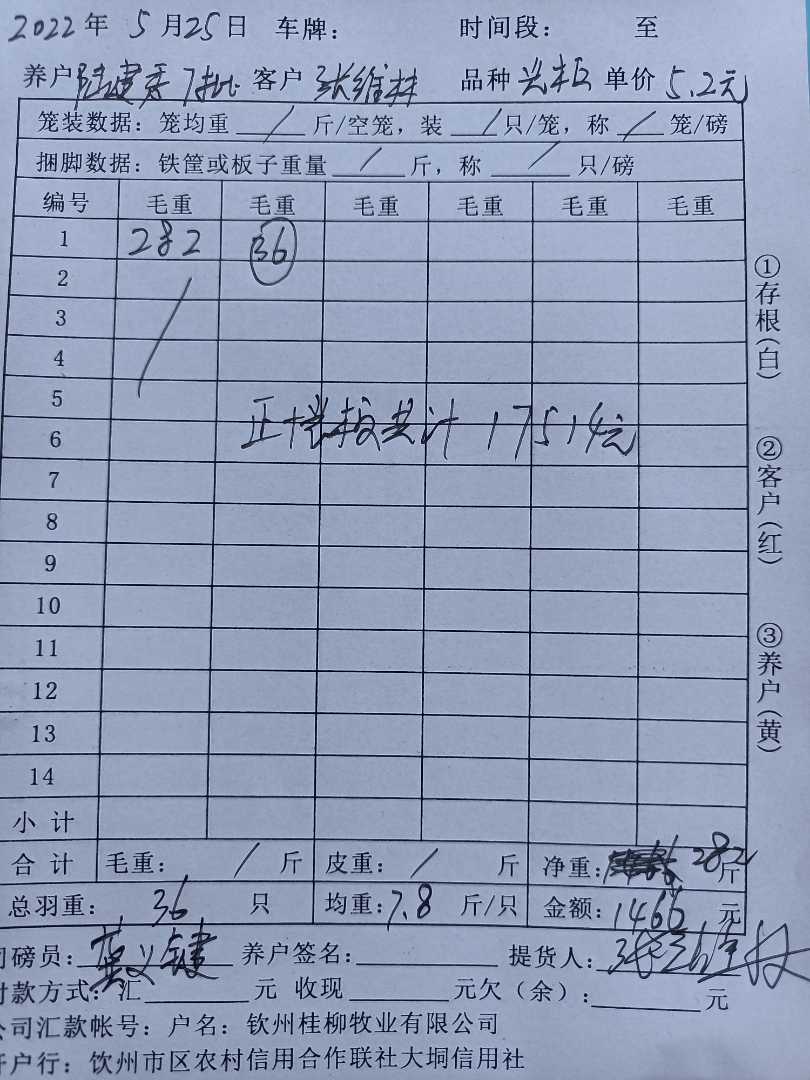 2022年 5月25日 车牌： 时间段： 至
养户 陆建香 7批 客户 张维林 品种 单价 5.2元
笼装数据：笼均重 / 斤/空笼，装 / 只/笼，称 / 笼/磅
捆脚数据：铁筐或板子重量 / 斤，称 / 只/磅
编号 毛重 毛重 毛重 毛重 毛重 毛重
1 282 36
2
3
4
5
6 正 板共计 17514元
7
8
9
10
11
12
13
14
小计
合计 毛重： / 斤 皮重： / 斤 净重： 282 斤
总羽重： 36 只 均重：7.8 斤/只 金额：1466 元
司磅员： 莫义键 养户签名： 提货人：张维林
付款方式：汇 元 收现 元欠（余）： 元
公司汇款帐号：户名：钦州桂柳牧业有限公司
开户行：饮州市区农村信用合作联社大垌信用社
①存根（白）
②客户（红）
③养户（黄）